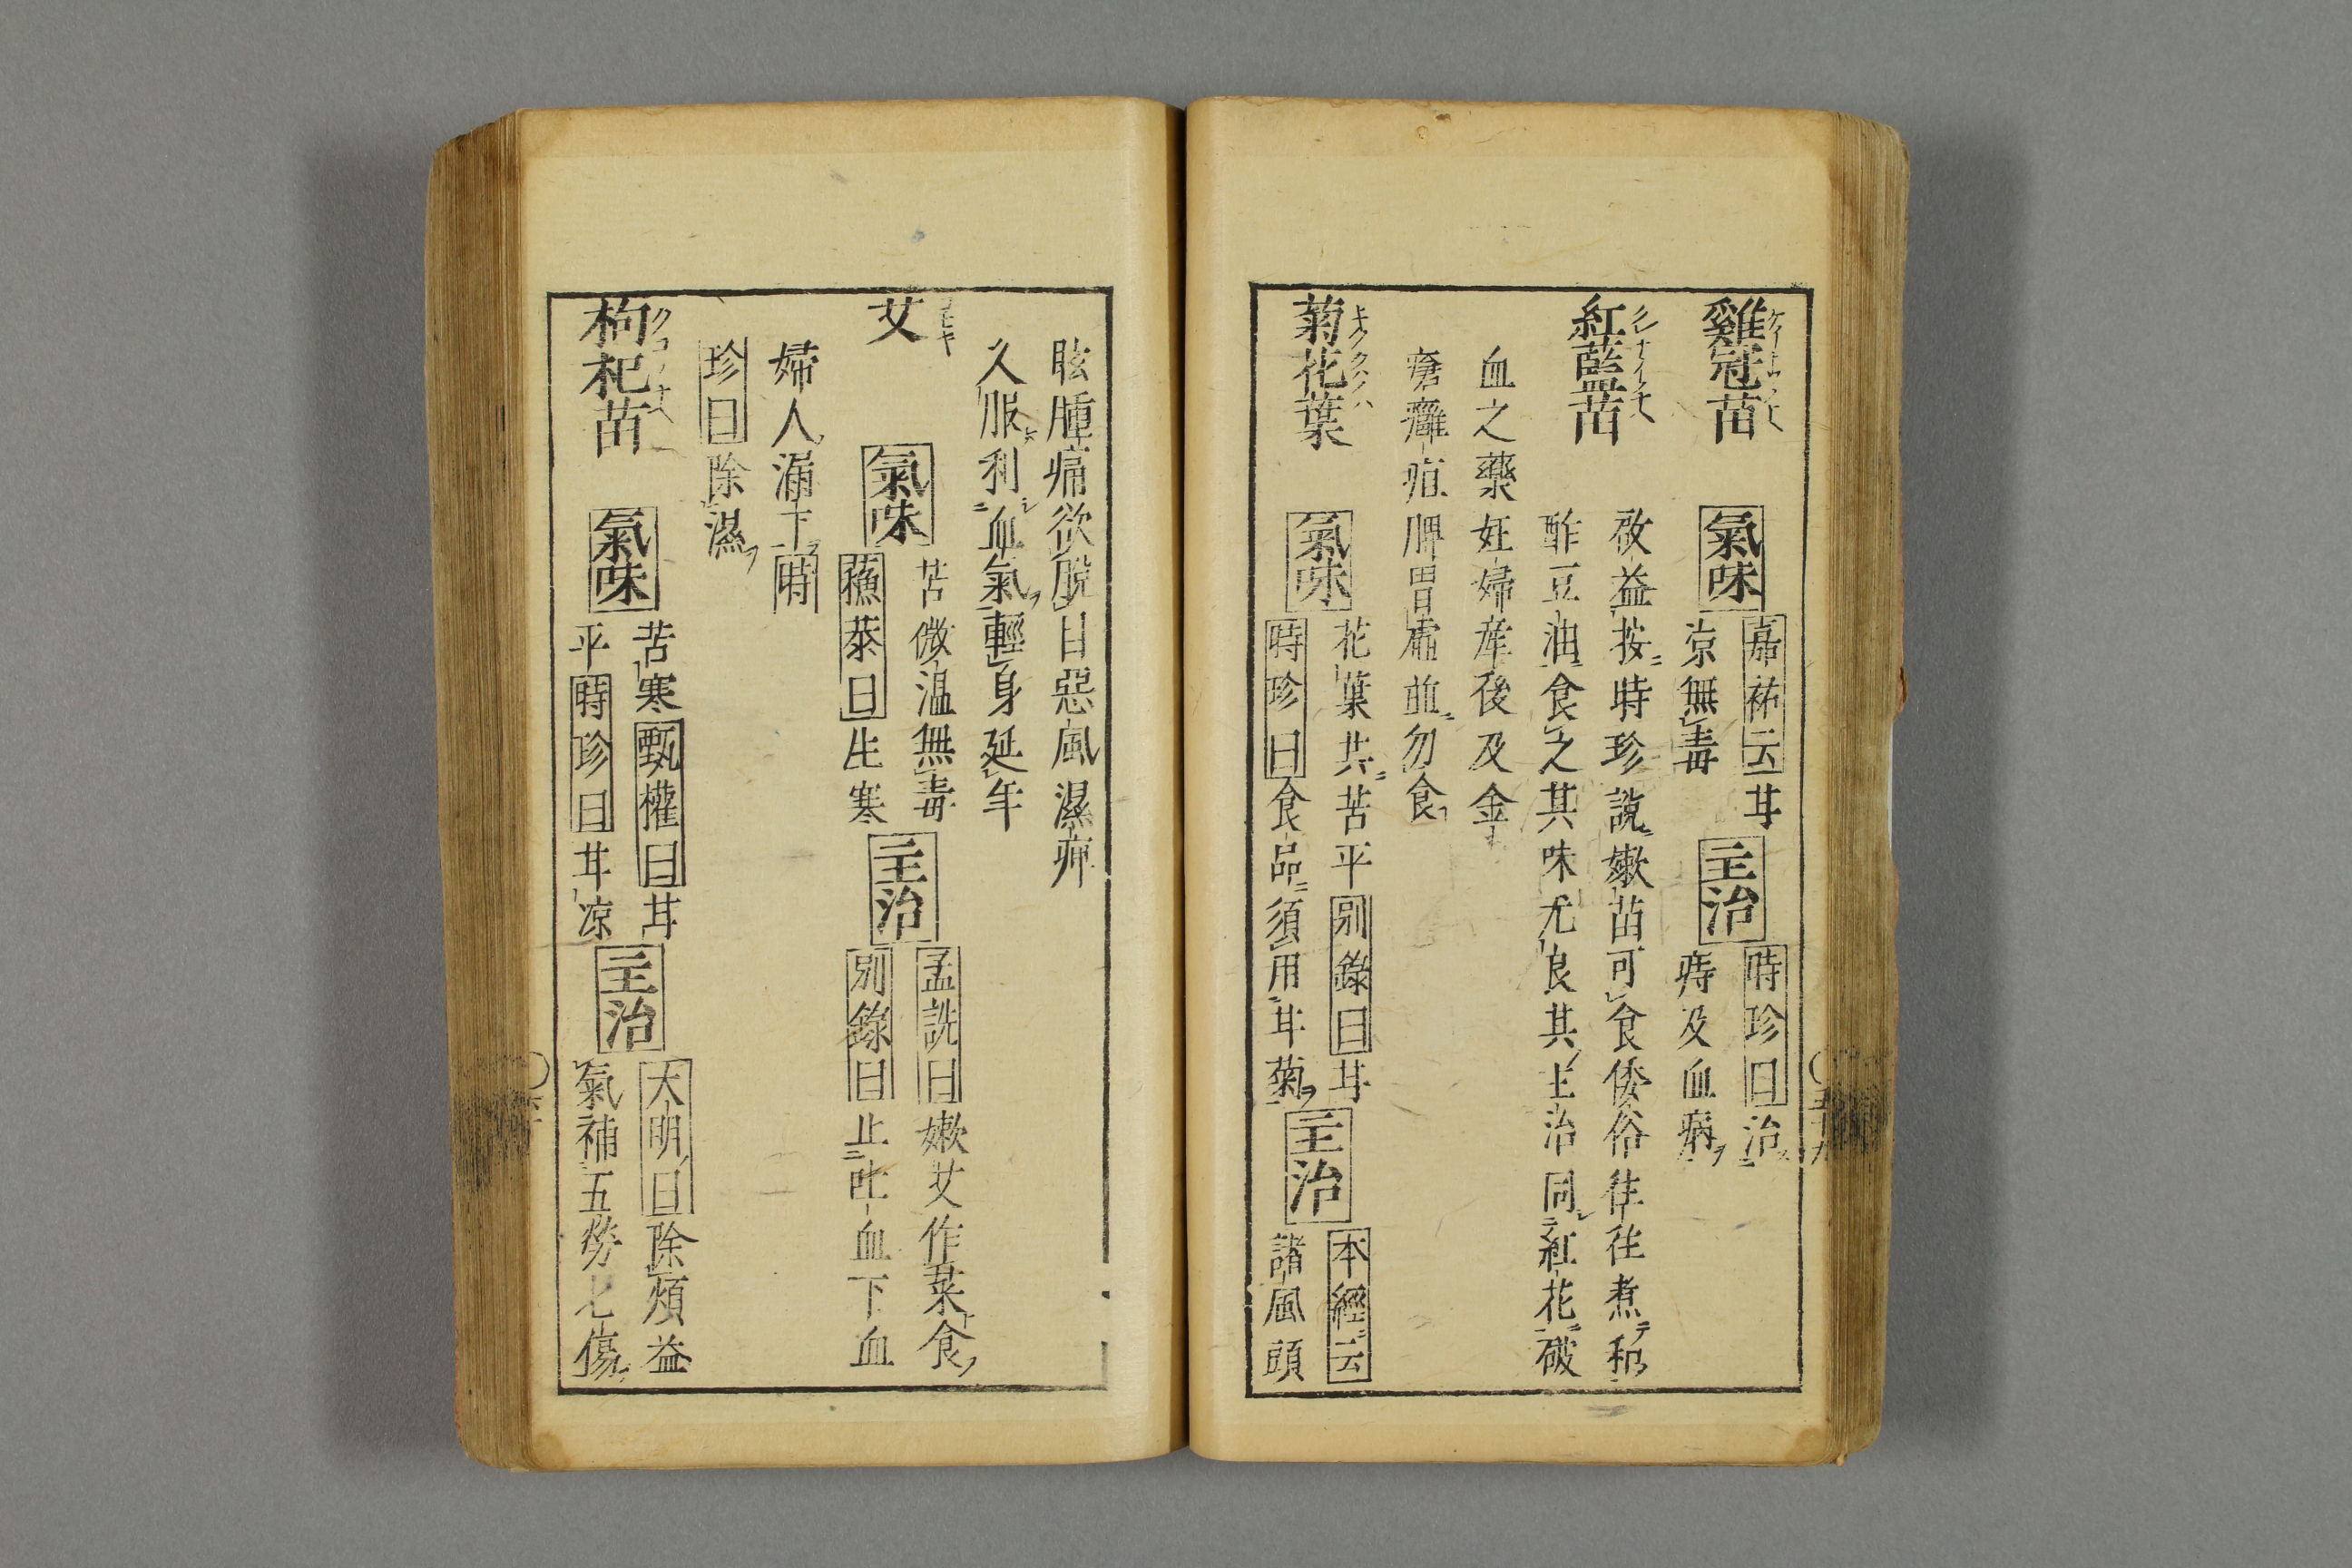 雞冠苗 氣味 嘉祐云甘
凉無毒 主治 時珍曰治
痔及血病
啟益按時珍說嫩苗可食倭俗往往煮和
紅藍苗 酢豆油食之其味尤良其主治同紅花破
血之藥妊婦產後及金
瘡癰疽脾胃虛並勿食
菊花葉 氣味 花葉共苦平別錄曰甘
時珍曰食品須用甘菊 主治 本經云
諸風頭
五十九
眩腫痛欲脫目惡風濕痹
久服利血氣輕身延年
艾 氣味 苦微溫無毒
蘓恭曰生寒 主治 孟詵曰嫩艾作菜食
別錄曰止吐血下血
婦人漏下時
珍曰除濕
枸杞苗 氣味 苦寒甄權曰甘
平時珍曰甘凉 主治 大明曰除煩益
氣補五勞七傷